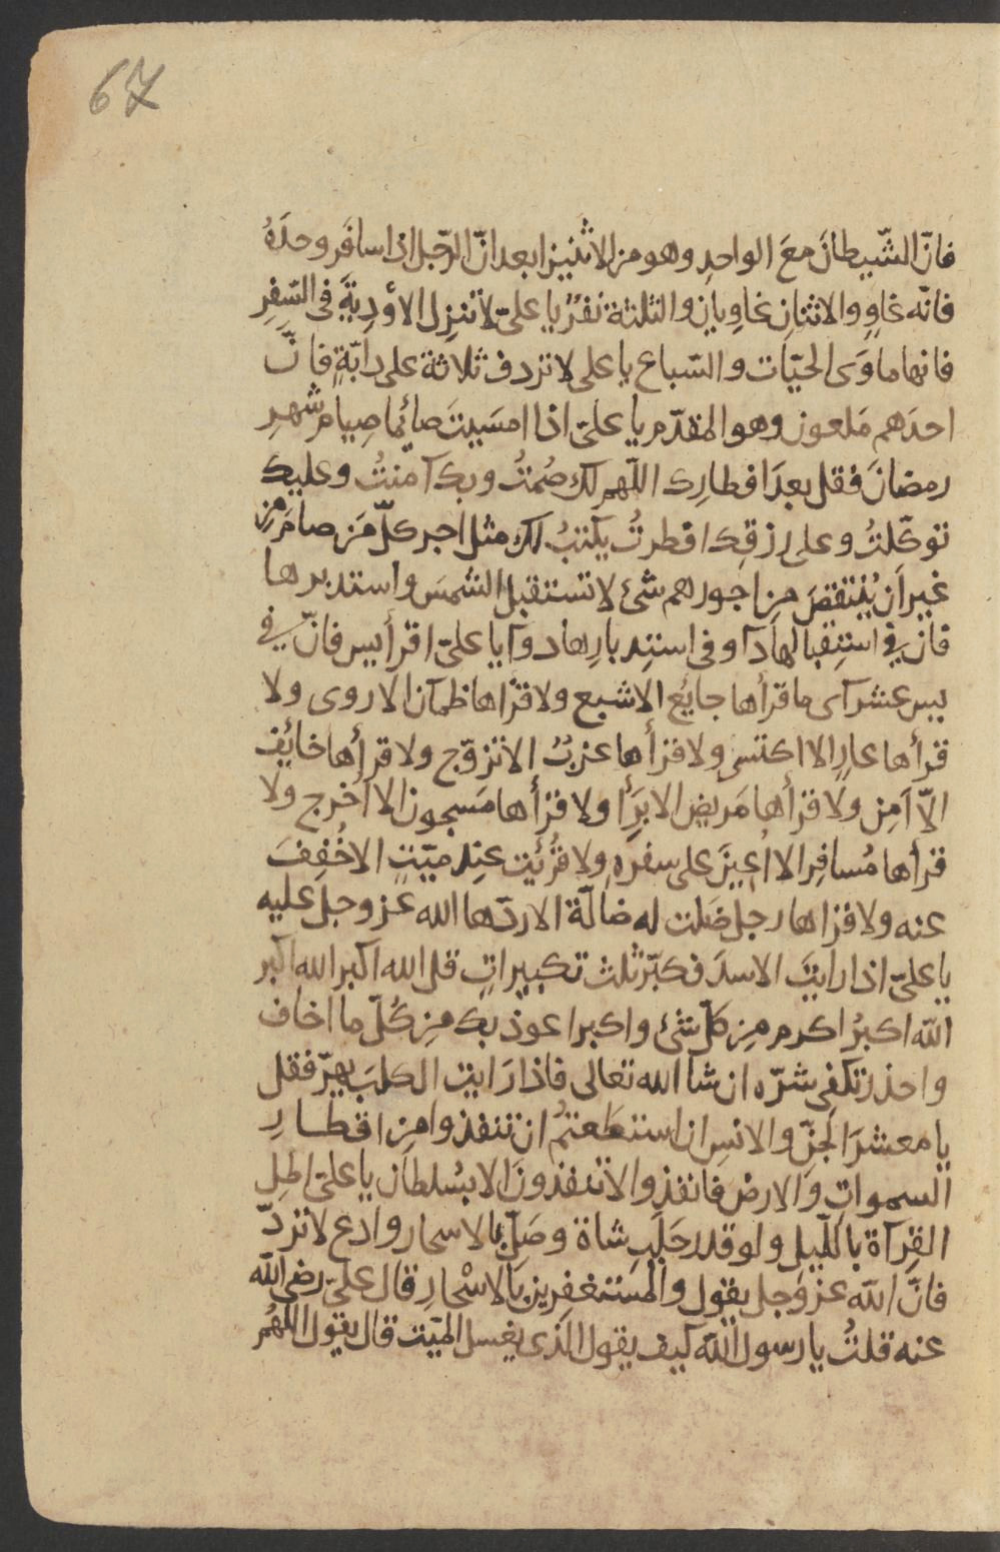 67
فانّ الشّيطانَ معَ الواحدِ وهو من الاثنين ابعد انّ الرّجل اذا سافَر وحدَهُ
فانّه غاوٍ والاثنانِ غاوِيان والثلثة نفرٌ يا علىّ لا تنزِل الأودِيةَ فى السّفرِ
فانها ماوَى الحيّات والسّباع يا على لا تردف ثلاثة على دابّةٍ فانّ
احدَهم مَلعون وهو المقدّم يا علىّ اذا امسَيتَ صائما صِيام شهرِ
رمضانَ فقل بعدَ افطارِك اللّهم لك صُمتُ وبك آمنتُ وعليك
توكّلتُ وعلى رزقِك افطرتُ يكتبُ لك مثل اجر كلّ مَن صامَ مِن
غير اَن يُنتقصَ من اجورهم شئ لا تستقبل الشمسَ واستدبرها
فان فى استِقبالها دآ وفى استِدبارِها دوآ يا علىّ اقرأ يس فانّ فى
يس عشر آى ما قرأها جايُع الا شبع ولا قرأها ظمآن الا روى ولا
قرأها عارٍ الا اكتسى ولا قرأها عزبٌ الا تزوّج ولا قرأها خايُف
الّا اَمِن ولا قرأها مَريض الا برَأ ولا قرأها مَسجون الا اخرج ولا
قرأها مُسافِر الا اُعِينَ على سفرِه ولا قُرُئيت عِند ميّتٍ الا خُفِفَ
عنه ولا قراها رجل ضَلت له ضالّة الا ردّها الله عز وجل عليه
يا علىّ اذا رايتَ الاسدَ فكبّر ثلث تكبيراتٍ قل الله اكبر الله اكبر
الله اكبرُ اكرم مِن كلّ شئ واكبر اعوذ بك مِن كُلّ ما اخاف
واحذر تكفى شرّه ان شا الله تعالى فاذا رَايتِ الكلبَ يهرّ فقل
يا معشرَ الجِنّ والانسِ ان استطعتُم ان تنفذوا مِن اقطارِ
السمواتِ والارض فانفذوا لا تنفذونَ الا بسُلطان يا علىّ اطِلِ
القِرآة باللّيلِ ولو قدر حَلَبِ شاة وصَلّ بالاسحار وادع لا تردّ
فانّ الله عزّ وجل يقول والمُستغفِرين بالاسْحارِ قال علىّ رضى الله
عنه قلتُ يا رسول الله كيف يقول الّذى يغسل الميّت قال يقول اللّهُم